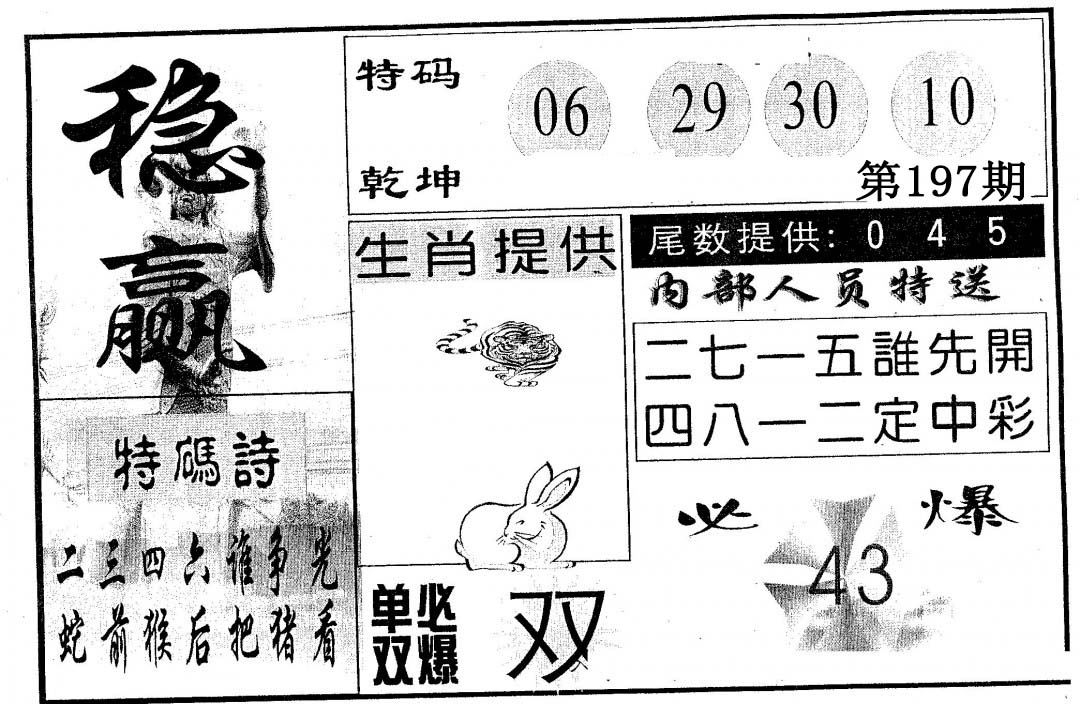 稳赢
特码
乾坤
06 29 30 10
第197期
生肖提供
尾数提供: 0 4 5
内部人员特送
二七一五誰先開
四八一二定中彩
特碼詩
二三四六谁争光
蛇前猴后把猪看
必爆
43
单双必爆
双